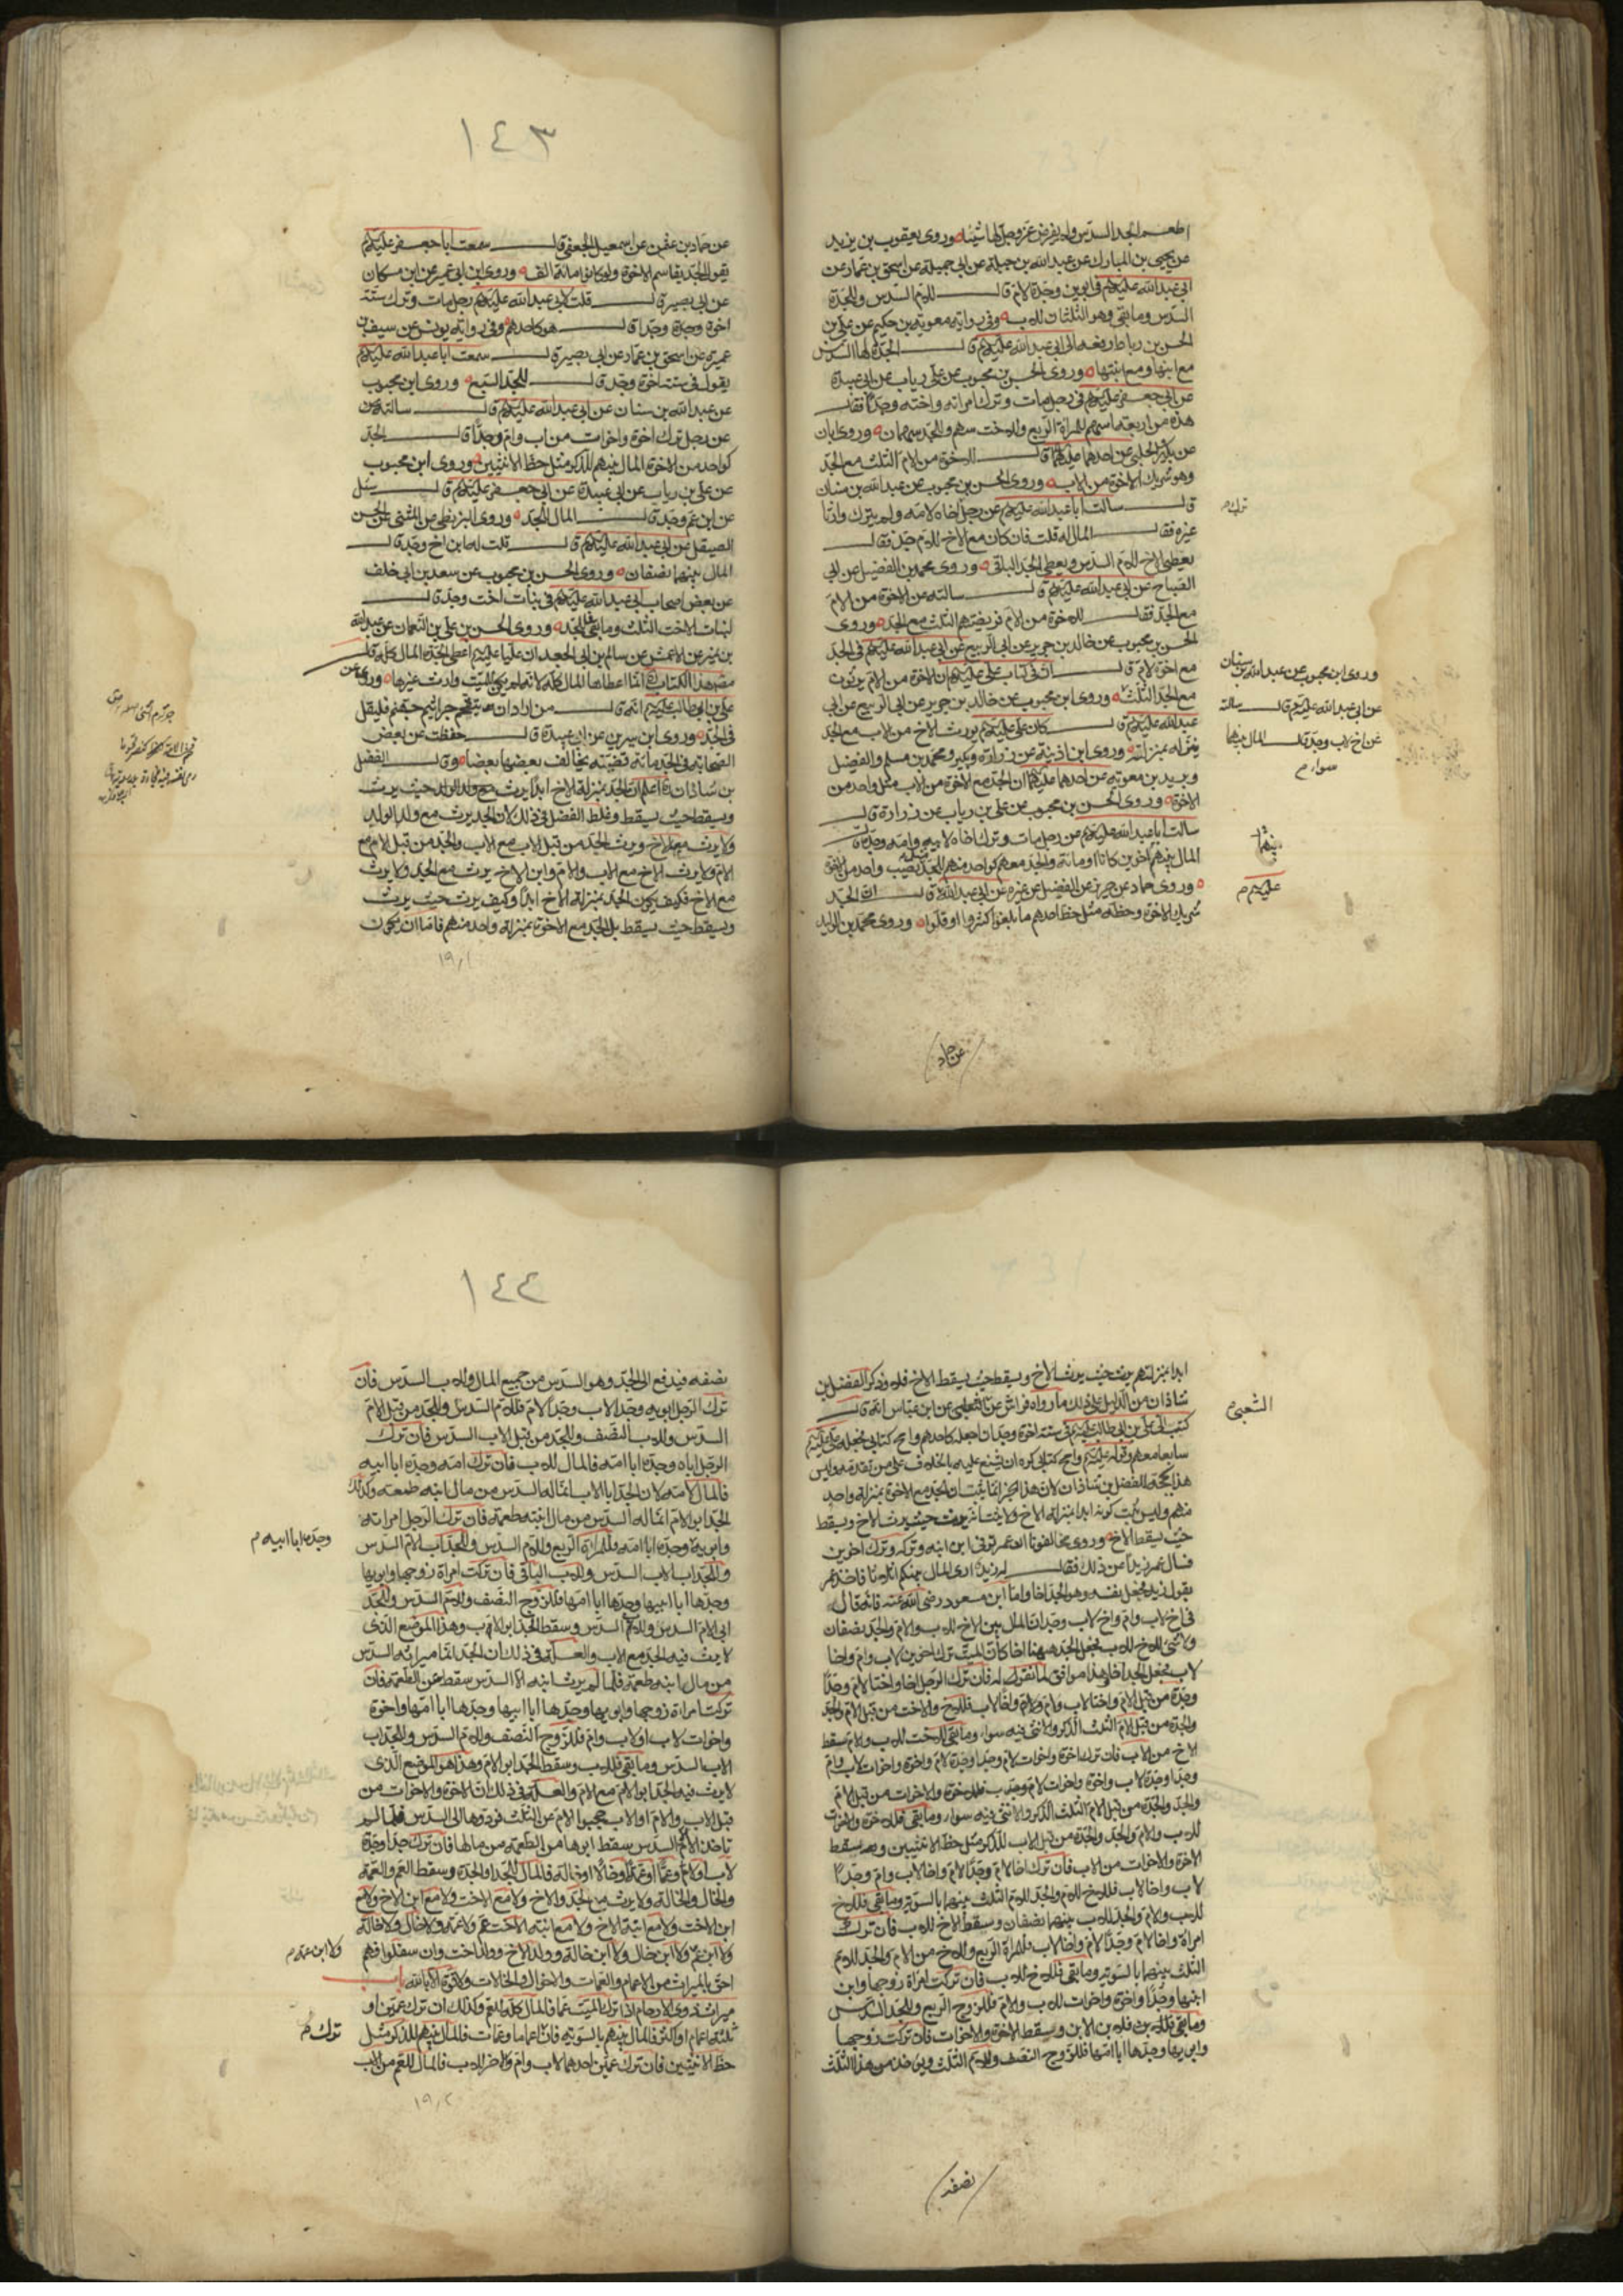 اطعم الجد السدس ولم يفرض عز وجل لها شيئا وروى يعقوب بن يزيد
عن يحيى بن المبارك عن عبد الله بن جبلة عن ابي جميلة عن اسحق بن عمار عن
ابي عبد الله عليه السلم في ابوين وجدة لام قال للام السدس وللجدة
السدس وما بقى وهو الثلثان للاب وفي رواية معوية بن حكيم عن علي بن
الحسن بن رباط رفعه الى ابي عبد الله عليه السلم قال الجدة لها السدس
مع ابنها ومع ابنتها وروى الحسن بن محبوب عن علي بن رياب عن ابي عبيدة
عن ابي جعفر عليه السلم في رجل مات وترك امراته واخته وجده فقال
هذه من اربعة اسهم للمراة الربع وللاخت سهم وللجد سهمان وروى ابان
عن بكير والحلبي عن احدهما عليهما قال للاخوة من الام الثلث مع الجد
وهو شريك الاخوة من الاب وروى الحسن بن محبوب عن عبد الله بن سنان
قال سالت ابا عبد الله عليه السلم عن رجل اخاه لامه ولم يترك وارثا
ترك م
غيره فقال المال له قلت فان كان مع الاخ للام جد فقال
يعطى الاخ للام السدس ويعطى الجد الباقي وروى محمد بن الفضيل عن ابي
الصباح عن ابي عبد الله عليه السلم قال سالته عن الاخوة من الام
مع الجد فقال للاخوة من الام فريضتهم الثلث مع الجد وروى
الحسن بن محبوب عن خالد بن جرير عن ابي الربيع عن ابي عبد الله عليه السلم في الجد
مع اخوة لام قال ان في كتاب علي عليه السلم ان الاخوة من الام يرثون
مع الجد الثلث وروى ابن محبوب عن خالد بن جرير عن ابي الربيع عن ابي
عبد الله عليه السلم قال كان علي عليه السلم يورث الاخ من الاب مع الجد
وروى ابن محبوب عن عبد الله بن سنان
عن ابي عبد الله عليه السلم قال سالته
عن اخ لاب وجد قال المال بينهما
سواء م
ينزله بمنزلته وروى ابن اذينة عن زرارة وبكير ومحمد بن مسلم والفضيل
وبريد بن معوية عن احدهما عليهما ان الجد مع الاخوة من الاب مثل واحد من
الاخوة وروى الحسن بن محبوب عن علي بن رياب عن زرارة قال
سالت ابا عبد الله عليه السلم عن رجل مات وترك اخاه لابيه وامه وجده قال
المال بينهم اخوين كانا او مائة والجد معهم كواحد منهم للجد نصيب واحد من الاخوة
بينهما
وروى حماد عن حريز عن الفضيل عن غيره عن ابي عبد الله قال ان الجد
عليه السلم م
شريك الاخوة وحظه مثل حظ احدهم ما بلغوا كثروا او قلوا وروى محمد بن الوليد
عن حماد
١٤٣
عن حماد بن عثمن عن اسمعيل الجعفي قال سمعت ابا جعفر عليه السلم
يقول الجد يقاسم الاخوة ولو كانوا مائة الف وروى ابن ابي عمير عن ابن مسكان
عن ابي بصير قال قلت لابي عبد الله عليه السلم رجل مات وترك ستة
اخوة وجدة وجدا قال هو كاحدهم وفي رواية يونس عن سيف بن
عميرة عن اسحق بن عمار عن ابي بصير قال سمعت ابا عبد الله عليه السلم
يقول في ستة اخوة وجد قال للجد السبع وروى ابن محبوب
عن عبد الله بن سنان عن ابي عبد الله عليه السلم قال سالته عن
عن رجل ترك اخوة واخوات من اب وام وجدا قال الجد
كواحد من الاخوة المال بينهم للذكر مثل حظ الانثيين وروى ابن محبوب
عن علي بن رياب عن ابي عبيدة عن ابي جعفر عليه السلم قال سئل
عن ابن عم وجد قال المال للجد وروى البزنطي عن المثنى عن الحسن
الصيقل عن ابي عبد الله عليه السلم قال قلت له ابن اخ وجد قال
المال بينهما نصفان وروى الحسن بن محبوب عن سعد بن ابي خلف
عن بعض اصحاب ابي عبد الله عليه السلم في بنات اخت وجد قال
لبنات الاخت الثلث وما بقى فللجد وروى الحسن بن علي بن النعمان عن عبد الله
بن نمير عن الاعمش عن سالم بن ابي الجعد ان عليا عليه السلم اعطى الجدة المال كله قال
مصنف هذا الكتاب انما اعطاها المال كله لانه لم يكن للميت وارث غيرها وروى عن
علي بن ابي طالب عليه السلم انه قال من اراد ان يتقحم جراثيم جهنم فليقل
في الجد وروى ابن سيرين عن ابي عبيدة قال حفظت عن بعض
الصحابة في الجد مائة قضية يخالف بعضها بعضا وقال الفضل
بن شاذان اعلم ان الجد بمنزلة الاخ ابدا يرث مع ولد الولد حيث يرث
ويسقط حيث يسقط وغلط الفضل في ذلك لان الجد يرث مع ولد الولد
ولا يرث معه الاخ ويرث الجد من قبل الاب مع الاب والجد من قبل الام مع
الام ولا يرث الاخ مع الاب والام وابن الاخ يرث مع الجد ولا يرث
مع الاخ فكيف يكون الجد بمنزلة الاخ ابدا وكيف يرث حيث يرث
ويسقط حيث يسقط بل الجد مع الاخوة بمنزلة واحد منهم فاما ان يكون
١٩١
ابدا بمنزلتهم يرث حيث يرث الاخ ويسقط حيث يسقط الاخ فلا وذكر الفضل بن
شاذان من الدليل على ذلك ما رواه فراس عن الثعلبي عن ابن عباس انه قال
الشعبي م
كتب الي علي بن ابي طالب عليه السلم في ستة اخوة وجد ان اجعله كاحدهم وامح كتابي فجعله علي عليه السلم
سابعا معهم وقوله عليه السلم وامح كتابي كره ان يشنع عليه بالخلاف على من تقدمه وليس
هذا بحجة للفضل بن شاذان لان هذا الخبر انما يثبت ان الجد مع الاخوة بمنزلة واحد
منهم وليس يثبت كونه ابدا بمنزلة الاخ ولا يثبت انه يرث حيث يرث الاخ ويسقط
حيث يسقط الاخ وروى مخالفونا ان عمر توفي ابن ابنه وترك وترك اخوين
فسال عمر زيدا عن ذلك فقال له زيد ارى المال بينكم اثلاثا فاخذ عمر
بقول زيد فجعل نفسه وهو الجد اخا واما ابن مسعود رضي الله عنه فانه قال
في اخ لاب وام واخ لاب وجد ان المال بين الاخ للاب والام والجد نصفان
ولا شئ للاخ للاب فجعل الجد ههنا اخا كان الميت ترك اخوين لاب وام واخا
لاب فجعل الجد اخا هذا موافق لما نقول له فان ترك الرجل اخا واختا لام وجدا
وجدة من قبل الام واختا لاب وام واخا لاب فللاخ والاخت من قبل الام والجد
والجدة من قبل الام الثلث الذكر والانثى فيه سواء وما بقى للاخت للاب والام وسقط
الاخ من الاب فان ترك اخوة واخوات لام وجدا وجدة لام واخوة واخوات لاب وام
وجدا وجدة لاب واخوة واخوات لاب فللاخوة والاخوات من قبل الام
والجد والجدة من قبل الام الثلث الذكر والانثى فيه سواء وما بقى فللاخوة والاخوات
للاب والام والجد والجدة من قبل الاب للذكر مثل حظ الانثيين وسقط
الاخوة والاخوات من الاب فان ترك اخا لام وجدا لام واخا لاب وام وجدا
لاب واخا لاب فللاخ للام والجد للام الثلث بينهما بالسوية وما بقى فللاخ
للاب والام والجد للاب بينهما نصفان وسقط الاخ للاب فان ترك
امراة واخا لام وجدا لام واخا لاب فللمراة الربع وللاخ من الام والجد للام
الثلث بينهما بالسوية وما بقى فللاخ للاب فان تركت امراة زوجها وابن
ابنها وجدا واخوة واخوات لاب وام فللزوج الربع وللجد السدس
وما بقى فلابن الابن وسقط الاخوة والاخوات فان تركت زوجها
وابويها وجدها ابا امها فللزوج النصف وللام الثلث وياخذ من هذا الثلث
نصفه
١٤٤
نصفه فيدفع الى الجد وهو السدس من جميع المال وللاب السدس فان
ترك الرجل ابويه وجدا لاب وجدا لام فللام السدس وللجد من قبل الام
السدس وللاب النصف وللجد من قبل الاب السدس فان ترك
الرجل اباه وجده ابا امه فالمال للاب فان ترك امه وجده ابا ابيه
فالمال لامه لان الجد ابا الاب انما له السدس من مال ابنه طعمة وكذلك
الجد ابو الام انما له السدس من مال ابنته طعمة فان ترك الرجل امراته
وابويه وجده ابا امه فللمراة الربع وللام السدس وللجد اب الام السدس
وجده ابا ابيه م
وللجد اب الاب السدس وللاب الباقي فان تركت امراة زوجها وابويها
وجدها ابا ابيها وجدها ابا امها فللزوج النصف وللام السدس وللجد
ابي الام السدس وللاب السدس وسقط الجد ابو الاب وهذا الموضع الذي
لا يرث فيه الجد مع الاب والعلة في ذلك ان الجد انما ميراثه السدس
من مال ابنه طعمة فلما لم يرث ابنه الا السدس سقط عن الطعمة فان
تركت امراة زوجها وابويها وجدها ابا ابيها وجدها ابا امها واخوة
واخوات لاب او لاب وام فللزوج النصف وللام السدس وللجد اب
الاب السدس وما بقى فللاب وسقط الجد ابو الام وهذا هو الموضع الذي
لا يرث فيه الجد ابو الام مع الام والعلة في ذلك ان الاخوة والاخوات من
قبل الاب والام او الاب حجبوا الام عن الثلث فردوها الى السدس فلما لم
تاخذ الام الا السدس سقط ابوها من الطعمة من مالها فان ترك جدا وجدة
لاب او لام وعما او عمة او خالا او خالة فالمال للجد او الجدة وسقط العم والعمة
والخال والخالة ولا يرث مع الجد والاخ ولا مع الاخت ولا مع ابن الاخ ولا مع
ابن الاخت ولا مع ابنة الاخ ولا مع ابنة الاخت عم ولا عمة ولا خال ولا خالة
ولا ابن عم ولا ابن خال ولا ابن خالة وولد الاخ وولد الاخت وان سفلوا فهم
ولا ابن عمة م
احق بالميراث من الاعمام والعمات والاخوال والخالات ولا قوة الا بالله باب
ميراث ذوي الارحام اذا ترك الميت عما فالمال كله للعم وكذلك ان ترك عمين او
ثلثة اعمام او اكثر فالمال بينهم بالسوية فان اعماما وعمات فالمال بينهم للذكر مثل
ترك م
حظ الانثيين فان ترك عمين احدهما لاب وام والاخر لاب فالمال للعم من الاب
١٩٢